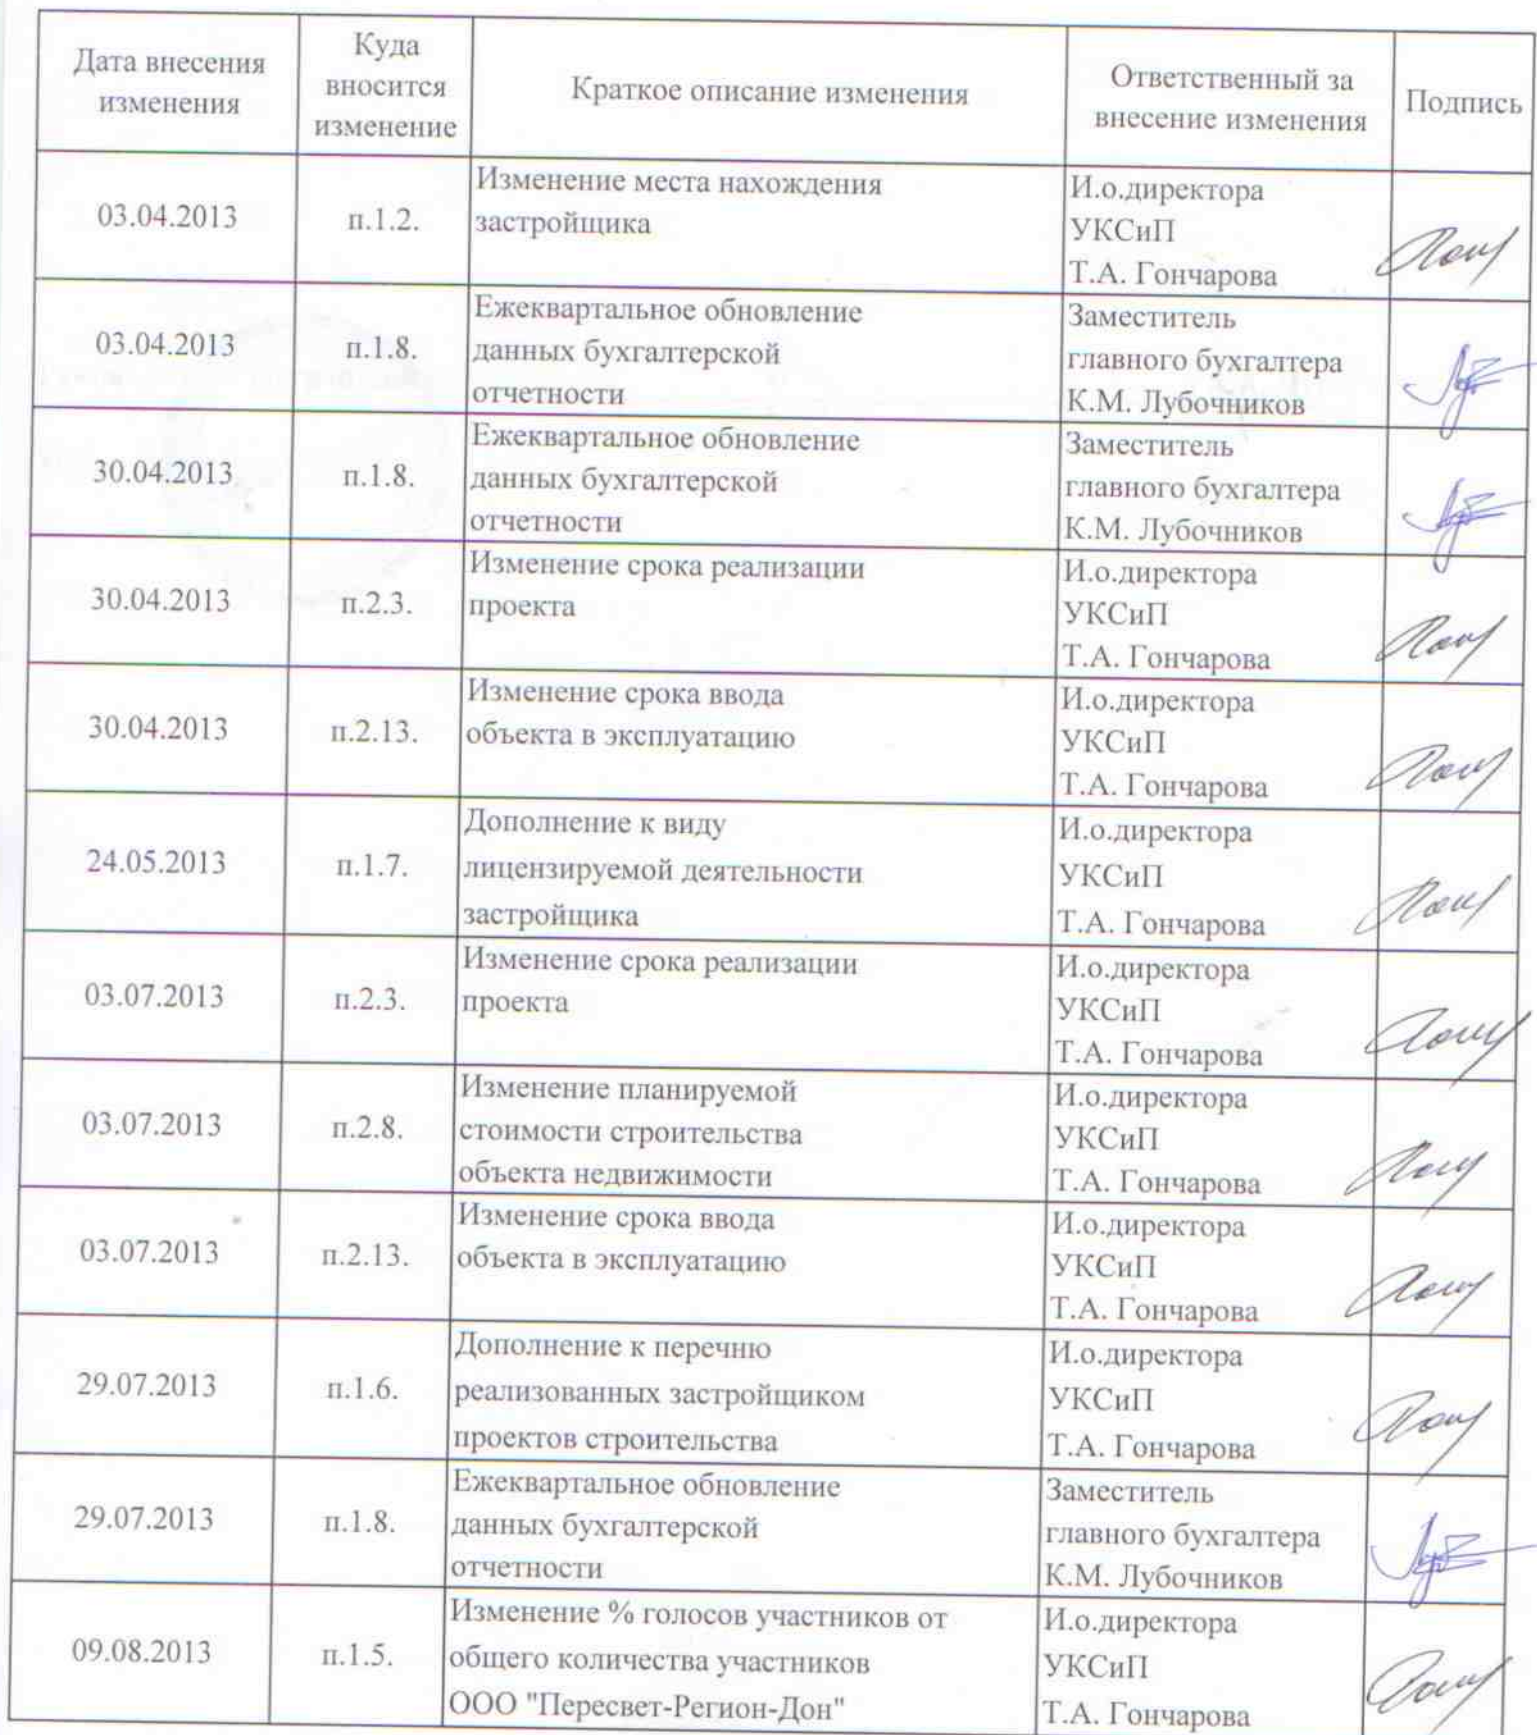 Дата внесения
изменения
Куда
вносится
изменение
Краткое описание изменения
Ответственный за
внесение изменения
Подпись
03.04.2013
п.1.2.
Изменение места нахождения
застройщика
И.о.директора
УКСиП
Т.А. Гончарова
03.04.2013
п.1.8.
Ежеквартальное обновление
данных бухгалтерской
отчетности
Заместитель
главного бухгалтера
К.М. Лубочников
30.04.2013
п.1.8.
Ежеквартальное обновление
данных бухгалтерской
отчетности
Заместитель
главного бухгалтера
К.М. Лубочников
30.04.2013
п.2.3.
Изменение срока реализации
проекта
И.о.директора
УКСиП
Т.А. Гончарова
30.04.2013
п.2.13.
Изменение срока ввода
объекта в эксплуатацию
И.о.директора
УКСиП
Т.А. Гончарова
24.05.2013
п.1.7.
Дополнение к виду
лицензируемой деятельности
застройщика
И.о.директора
УКСиП
Т.А. Гончарова
03.07.2013
п.2.3.
Изменение срока реализации
проекта
И.о.директора
УКСиП
Т.А. Гончарова
03.07.2013
п.2.8.
Изменение планируемой
стоимости строительства
объекта недвижимости
И.о.директора
УКСиП
Т.А. Гончарова
03.07.2013
п.2.13.
Изменение срока ввода
объекта в эксплуатацию
И.о.директора
УКСиП
Т.А. Гончарова
29.07.2013
п.1.6.
Дополнение к перечню
реализованных застройщиком
проектов строительства
И.о.директора
УКСиП
Т.А. Гончарова
29.07.2013
п.1.8.
Ежеквартальное обновление
данных бухгалтерской
отчетности
Заместитель
главного бухгалтера
К.М. Лубочников
09.08.2013
п.1.5.
Изменение % голосов участников от
общего количества участников
ООО "Пересвет-Регион-Дон"
И.о.директора
УКСиП
Т.А. Гончарова